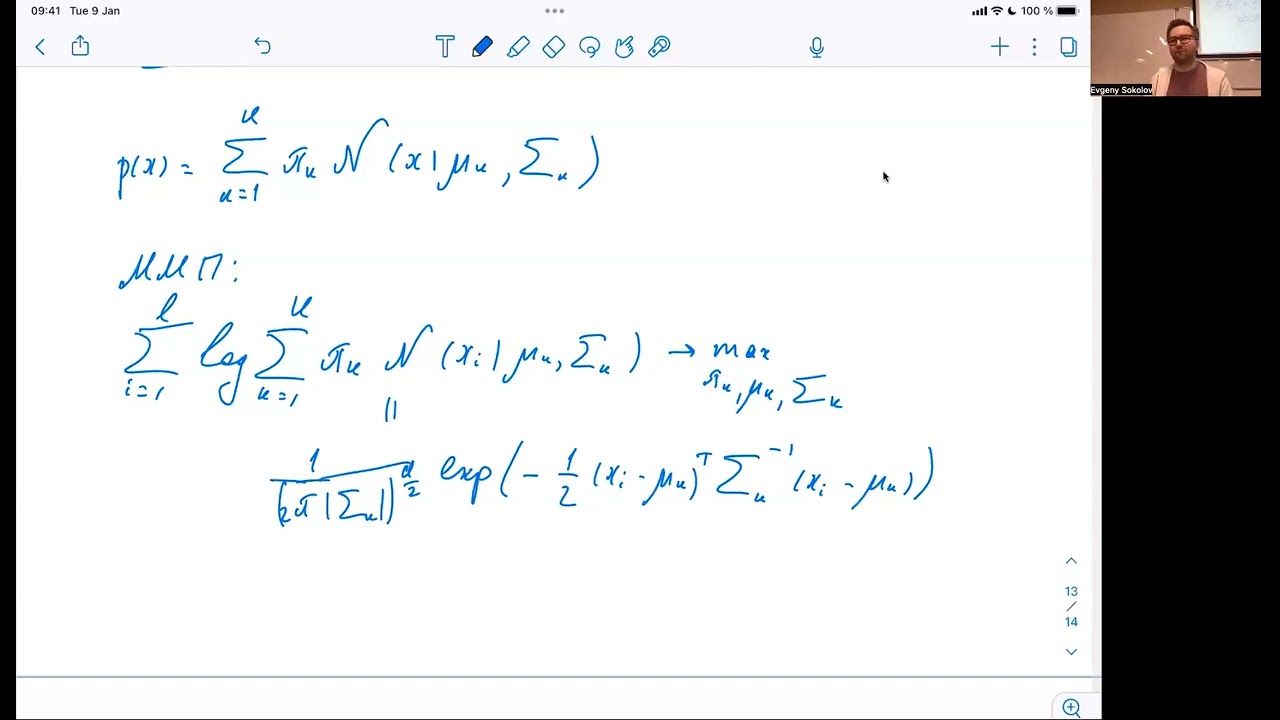 09:41 Tue 9 Jan
100 %
Evgeny Sokolov
p(x) = ∑_{k=1}^{K} π_k N(x | μ_k, Σ_k)
ММП:
∑_{i=1}^{ℓ} log ∑_{k=1}^{K} π_k N(x_i | μ_k, Σ_k) → max_{π_k, μ_k, Σ_k}
||
1 / (2π|Σ_k|)^{d/2} exp(− 1/2 (x_i − μ_k)^T Σ_k^{-1} (x_i − μ_k))
13
/
14